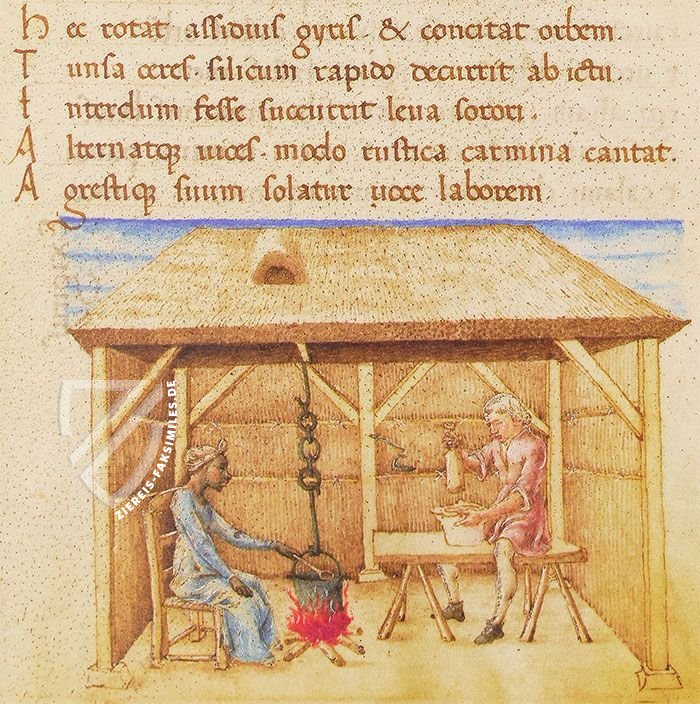 hec rotat assiduis gyris & concitat orbem
Tunsa ceres silicum rapido decurrit ab ictu.
Interdum fesse succurrit leua sorori.
Alternatq; uices. modo rustica carmina cantat.
Agrestiq; suum solatur uoce laborem
ZIEREIS-FAKSIMILES.DE